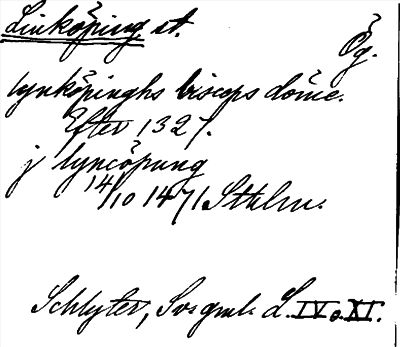 Linköping st.
Ög.
lynköpinghs biscops döme.
Efter 1327.
j lyncöpung
14/10 1471 Sthlm.
Schlyter, Sv. gml. L. IV o. XI.